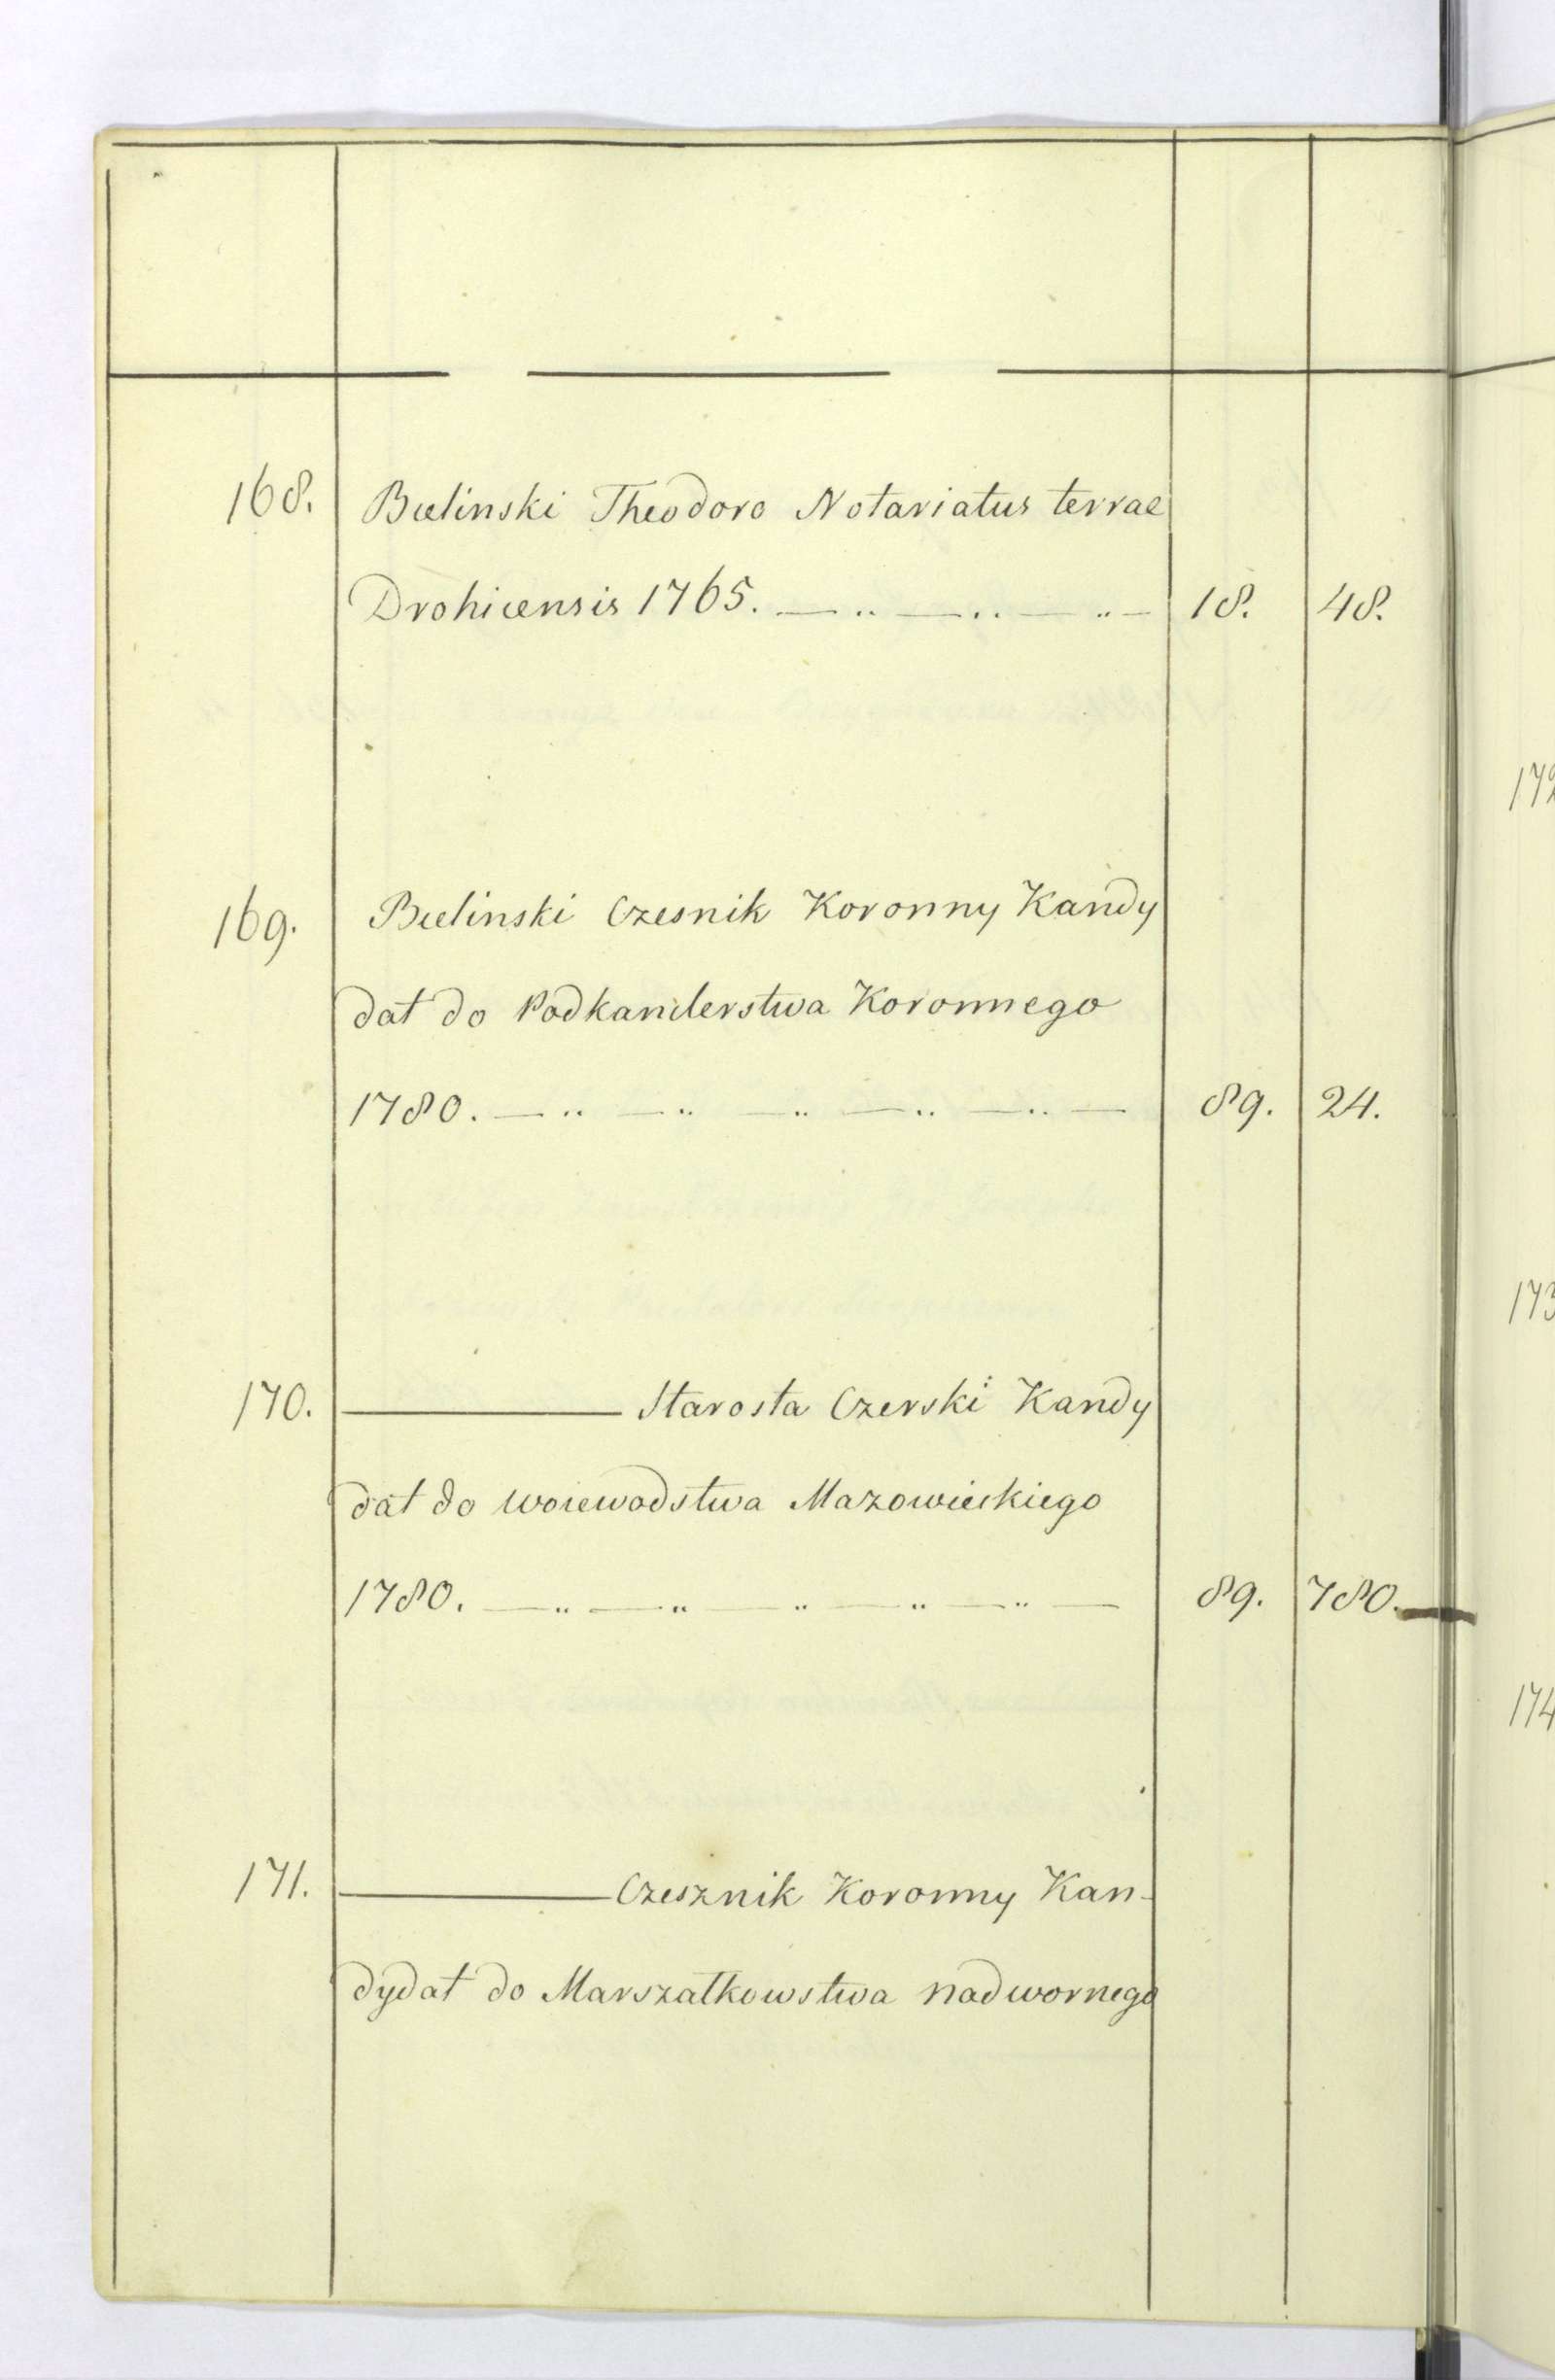 168. Bielinski Theodoro Notariatus terrae
Drohicensis 1765. — .. — .. — .. — 18. 48.
169. Bielinski Czesnik Koronny Kandy
dat do Podkanclerstwa Koronnego
1780. — .. — .. — .. — .. — .. — 89. 24.
170. ——— Starosta Czerski Kandy
dat do woiewodstwa Mazowieckiego
1780. — .. — .. — .. — .. — .. — 89. 780.
171. ——— Czesznik Koronny Kan-
dydat do Marszałkowstwa nadwornego
172
173
174